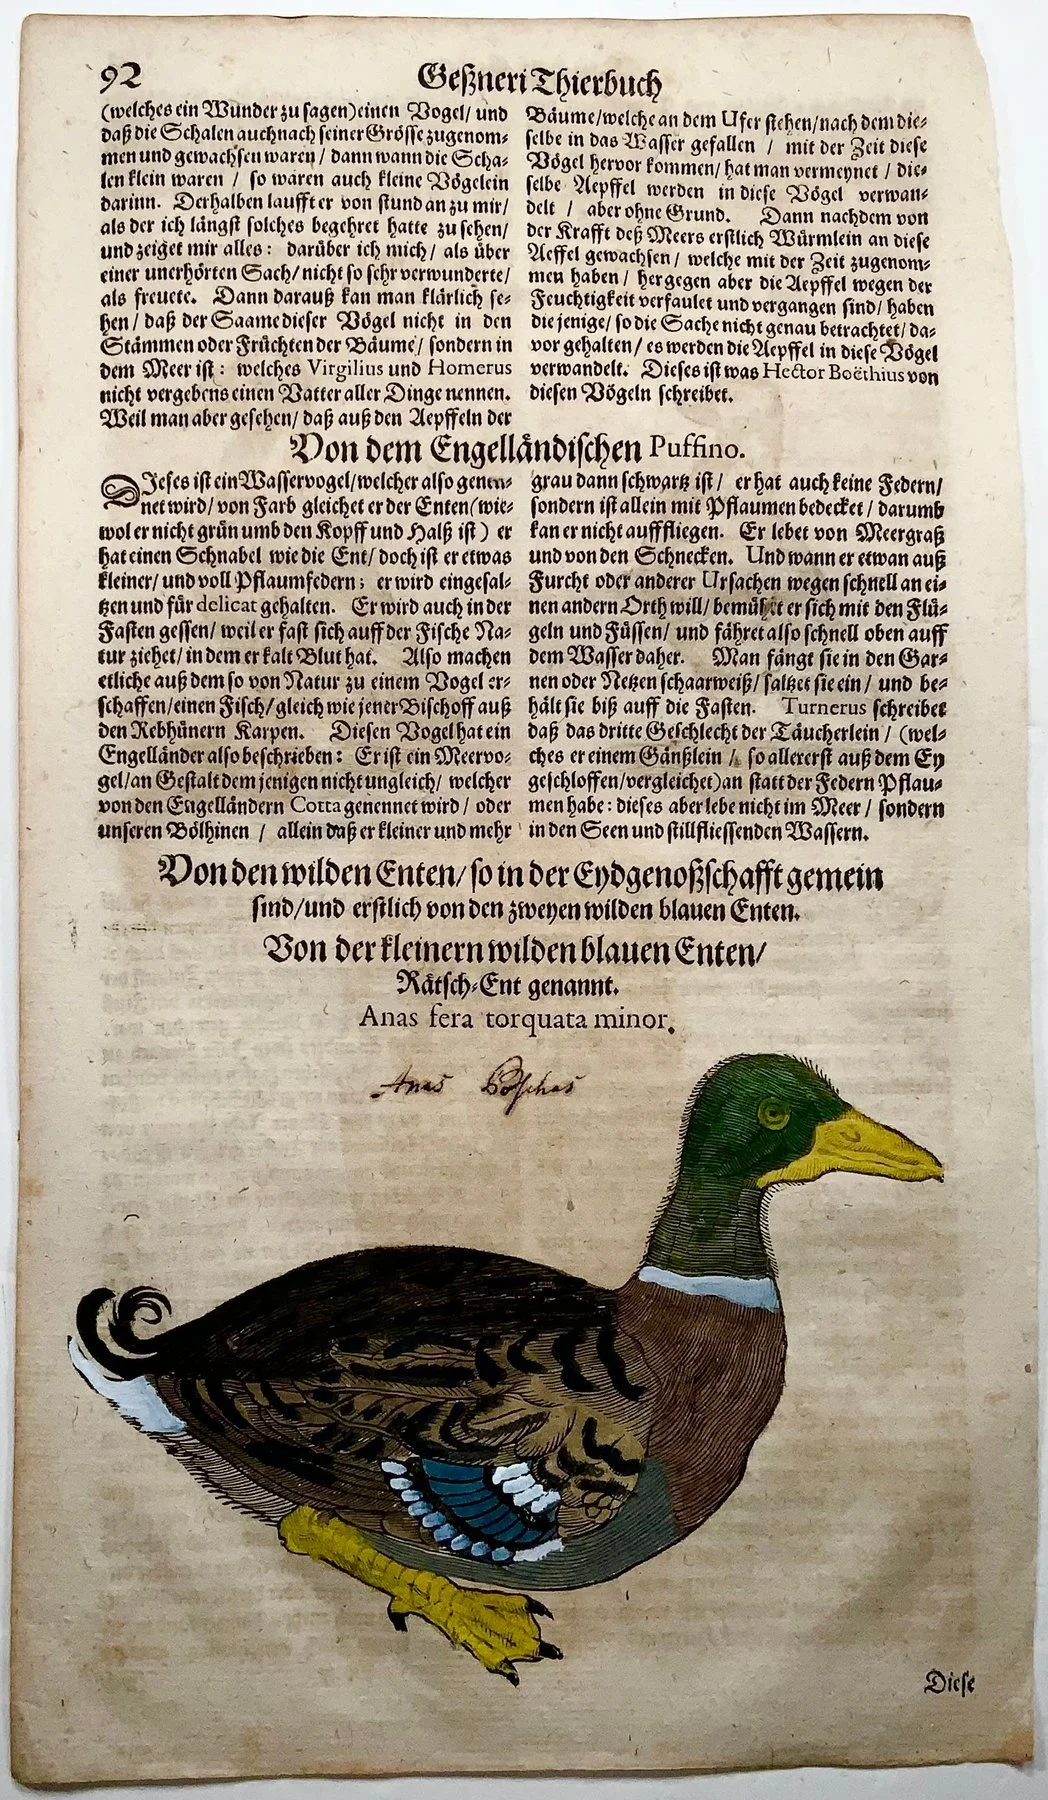 92
Geßneri Thierbuch
(welches ein Wunder zu sagen) einen Vogel/ und
daß die Schalen auch nach seiner Grösse zugenom-
men und gewachsen waren/ dann wann die Scha-
len klein waren / so waren auch kleine Vögelein
darinn. Derhalben laufft er von stund an zu mir/
als der ich längst solches begehret hatte zu sehen/
und zeiget mir alles: darüber ich mich/ als über
einer unerhörten Sach/ nicht so sehr verwunderte/
als freuete. Dann darauß kan man klärlich se-
hen/ daß der Saame dieser Vögel nicht in den
Stämmen oder Früchten der Bäume/ sondern in
dem Meer ist: welches Virgilius und Homerus
nicht vergebens einen Vatter aller Dinge nennen.
Weil man aber gesehen/ daß auß den Aepffeln der
Bäume/welche an dem Ufer stehen/nach dem die-
selbe in das Wasser gefallen / mit der Zeit diese
Vögel hervor kommen/ hat man vermeynet / die-
selbe Aepffel werden in diese Vögel verwan-
delt / aber ohne Grund. Dann nachdem von
der Krafft deß Meers erstlich Würmlein an diese
Aeffel gewachsen/ welche mit der Zeit zugenom-
men haben/ hergegen aber die Aepffel wegen der
Feuchtigkeit verfaulet und vergangen sind/ haben
die jenige/ so die Sache nicht genau betrachtet/ da-
vor gehalten/ es werden die Aepffel in diese Vögel
verwandelt. Dieses ist was Hector Boëthius von
diesen Vögeln schreibet.
Von dem Engelländischen Puffino.
DIeses ist ein Wasservogel/welcher also genen-
net wird/ von Farb gleichet er der Enten (wie-
wol er nicht grün umb den Kopff und Halß ist) er
hat einen Schnabel wie die Ent/ doch ist er etwas
kleiner/ und voll Pflaumfedern; er wird eingesal-
tzen und für delicat gehalten. Er wird auch in der
Fasten gessen/ weil er fast sich auff der Fische Na-
tur ziehet/ in dem er kalt Blut hat. Also machen
etliche auß dem so von Natur zu einem Vogel er-
schaffen/einen Fisch/gleich wie jener Bischoff auß
den Rebhünern Karpen. Diesen Vogel hat ein
Engelländer also beschrieben: Er ist ein Meervo-
gel/an Gestalt dem jenigen nicht ungleich/ welcher
von den Engelländern Cotta genennet wird / oder
unseren Bölhinen / allein daß er kleiner und mehr
grau dann schwartz ist/ er hat auch keine Federn/
sondern ist allein mit Pflaumen bedecket / darumb
kan er nicht aufffliegen. Er lebet von Meergraß
und von den Schnecken. Und wann er etwan auß
Furcht oder anderer Ursachen wegen schnell an ei-
nen andern Orth will/ bemühet er sich mit den Flü-
geln und Füssen/ und fähret also schnell oben auff
dem Wasser daher. Man fängt sie in den Gar-
nen oder Netzen schaarweiß/ saltzet sie ein/ und be-
hält sie biß auff die Fasten. Turnerus schreibet
daß das dritte Geschlecht der Täucherlein / (wel-
ches er einem Gänßlein / so allererst auß dem Ey
geschloffen/vergleichet) an statt der Federn Pflau-
men habe: dieses aber lebe nicht im Meer / sondern
in den Seen und stillfliessenden Wassern.
Von den wilden Enten/ so in der Eydgenoßschafft gemein
sind/und erstlich von den zweyen wilden blauen Enten.
Von der kleinern wilden blauen Enten/
Rätsch-Ent genannt.
Anas fera torquata minor.
Anas Boschas
Diese